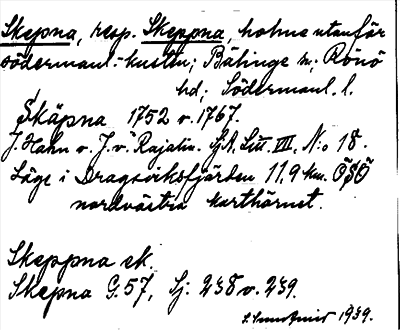 Skepna, resp. Skeppna, holme utanför
södermanl.-kusten; Bälinge sn; Rönö
hd; Södermanl. l.
Skäpna 1752 o. 1767.
J. Hahn o. J. v. Rajalin. Sj.A. Litt. VIII. N:o 18.
Läge i Dragsviksfjärden 11,9 km. ÖSÖ
nordvästra karthörnet.
Skeppna ek.
Skepna G. 57, Sj: 238 o. 239.
1939.